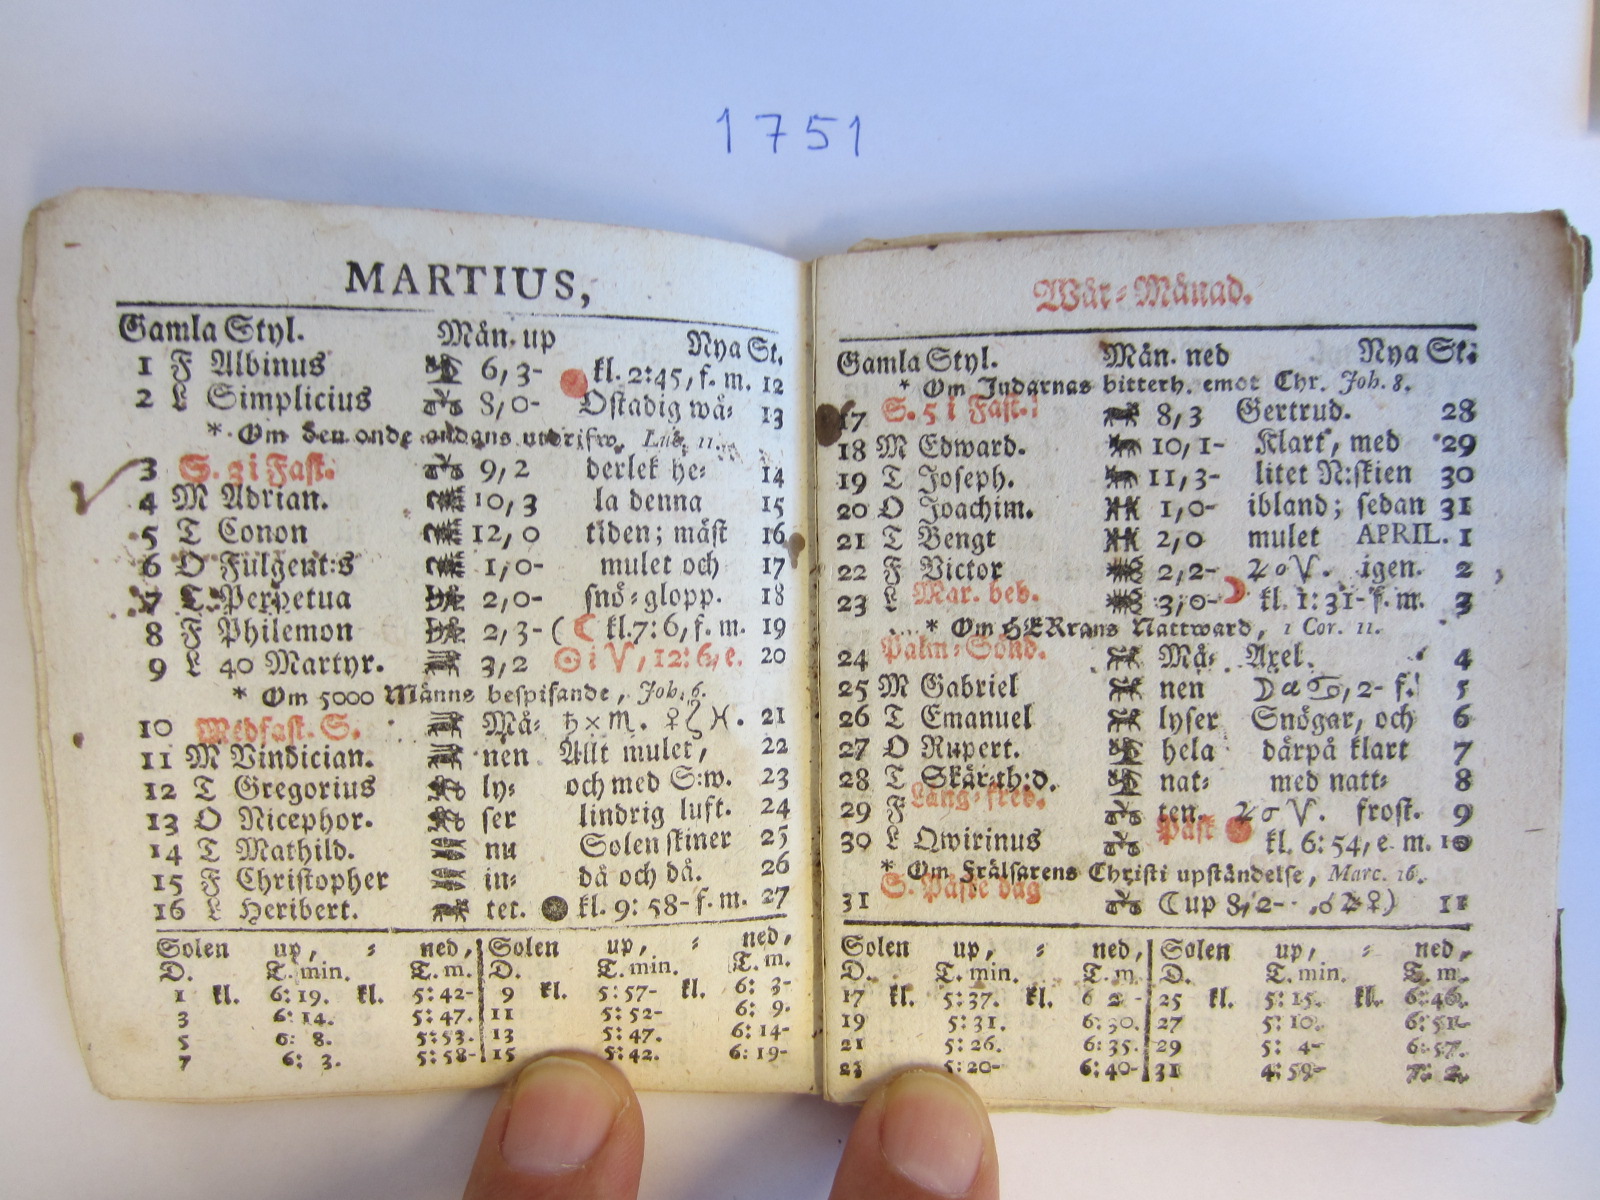 1751
MARTIUS,
Gamla Styl. Mån. up Nya St.
1 F Albinus 6, 3- kl. 2:45, f. m. 12
2 L Simplicius 8, 0- Ostadig wä- 13
* Om den onde andans utdrifw. Luc. 11.
3 S. 3 i Fast. 9, 2 derlek he- 14
4 M Adrian. 10, 3 la denna 15
5 T Conon 12, 0 tiden; mäst 16
6 O Fulgent:s 1, 0- mulet och 17
7 T Perpetua 2, 0- snö-glopp. 18
8 F Philemon 2, 3- (☾ kl. 7:6, f. m. 19
9 L 40 Martyr. 3, 2 ☉ i ♈, 12:6, e. 20
* Om 5000 Männs bespisande, Joh. 6.
10 Medfast. S. Må- ♄ × ♏. ♀ ♓. 21
11 M Vindician. nen Allt mulet, 22
12 T Gregorius ly- och med S:w. 23
13 O Nicephor. ser lindrig luft. 24
14 T Mathild. nu Solen skiner 25
15 F Christopher in- då och då. 26
16 L Heribert. tet. kl. 9:58- f. m. 27
Solen up, - ned, Solen up, - ned,
D. T. min. T. m. D. T. min. T. m.
1 kl. 6:19. kl. 5:42- 9 kl. 5:57- kl. 6: 3-
3 6:14. 5:47. 11 5:52- 6: 9.
5 6: 8. 5:53. 13 5:47. 6:14-
7 6: 3. 5:58- 15 5:42. 6:19-
Wår-Månad.
Gamla Styl. Mån. ned Nya St.
* Om Judarnas bitterh. emot Chr. Joh. 8.
17 S. 5 i Fast. 8, 3 Gertrud. 28
18 M Edward. 10, 1- Klart, med 29
19 T Joseph. 11, 3- litet N:skien 30
20 O Joachim. 1, 0- ibland; sedan 31
21 T Bengt 2, 0 mulet APRIL. 1
22 F Victor 2, 2- ♃ ☌ ♈. igen. 2
23 L Mar. beb. 3, 0- ☽ kl. 1:31- f. m. 3
* Om HERrans Nattward, 1 Cor. 11.
24 Palm-Sönd. Må- Axel. 4
25 M Gabriel nen ☽ a ♋, 2- f. 5
26 T Emanuel lyser Snögar, och 6
27 O Rupert. hela därpå klart 7
28 T Skär-th:d. nat- med natt- 8
29 F Lång-fred. ten. ♃ ♂ ♈. frost. 9
30 L Qwirinus Påsk kl. 6:54, e m. 10
* Om Frälsarens Christi upståndelse, Marc. 16.
31 S. Påske dag (up 8, 2- ☌ ♃ ♀) 11
Solen up, - ned, Solen up, - ned,
D. T. min. T. m D. T. min. T. m.
17 kl. 5:37. kl. 6 2- 25 kl. 5:15. kl. 6:46.
19 5:31. 6:30. 27 5:10. 6:51-
21 5:26. 6:35. 29 5: 4- 6:57.
23 5:20- 6:40- 31 4:59- 7: 2.